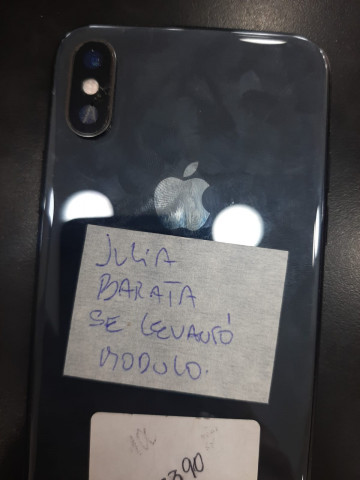 JULIA
BARATA
SE LEVANTÓ
MODULO.
390